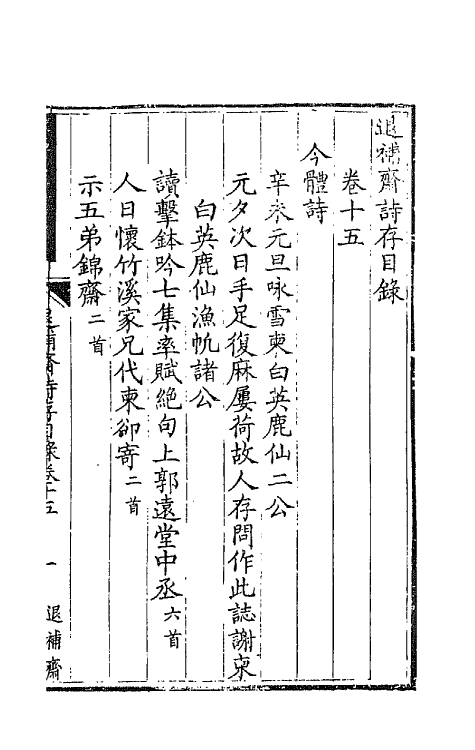 退補齋詩存目錄
卷十五
今體詩
辛未元旦咏雪柬白英鹿仙二公
元夕次日手足復麻屢荷故人存問作此誌謝柬
白英鹿仙漁帆諸公
讀擊鉢吟七集率賦絶句上郭遠堂中丞六首
人日懷竹溪家兄代柬卻寄二首
示五弟錦齋二首
退補齋詩存目錄卷十五
一
退補齋